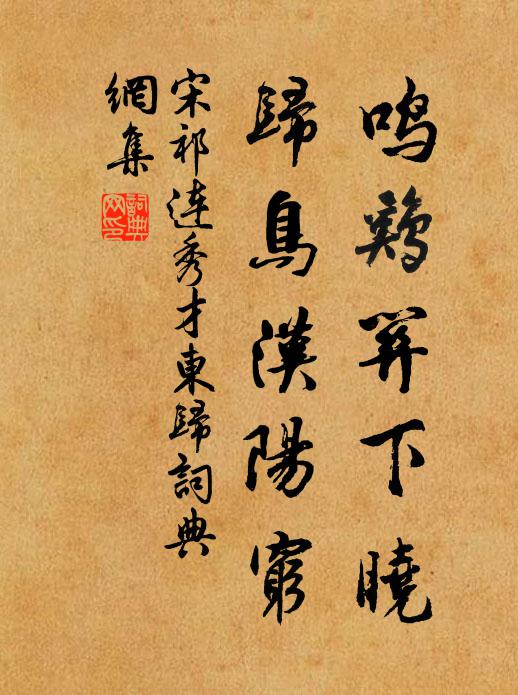 鳴鷄關下曉
歸鳥漢陽窮
宋祁連秀才東歸詞典
網集
詞典
网印